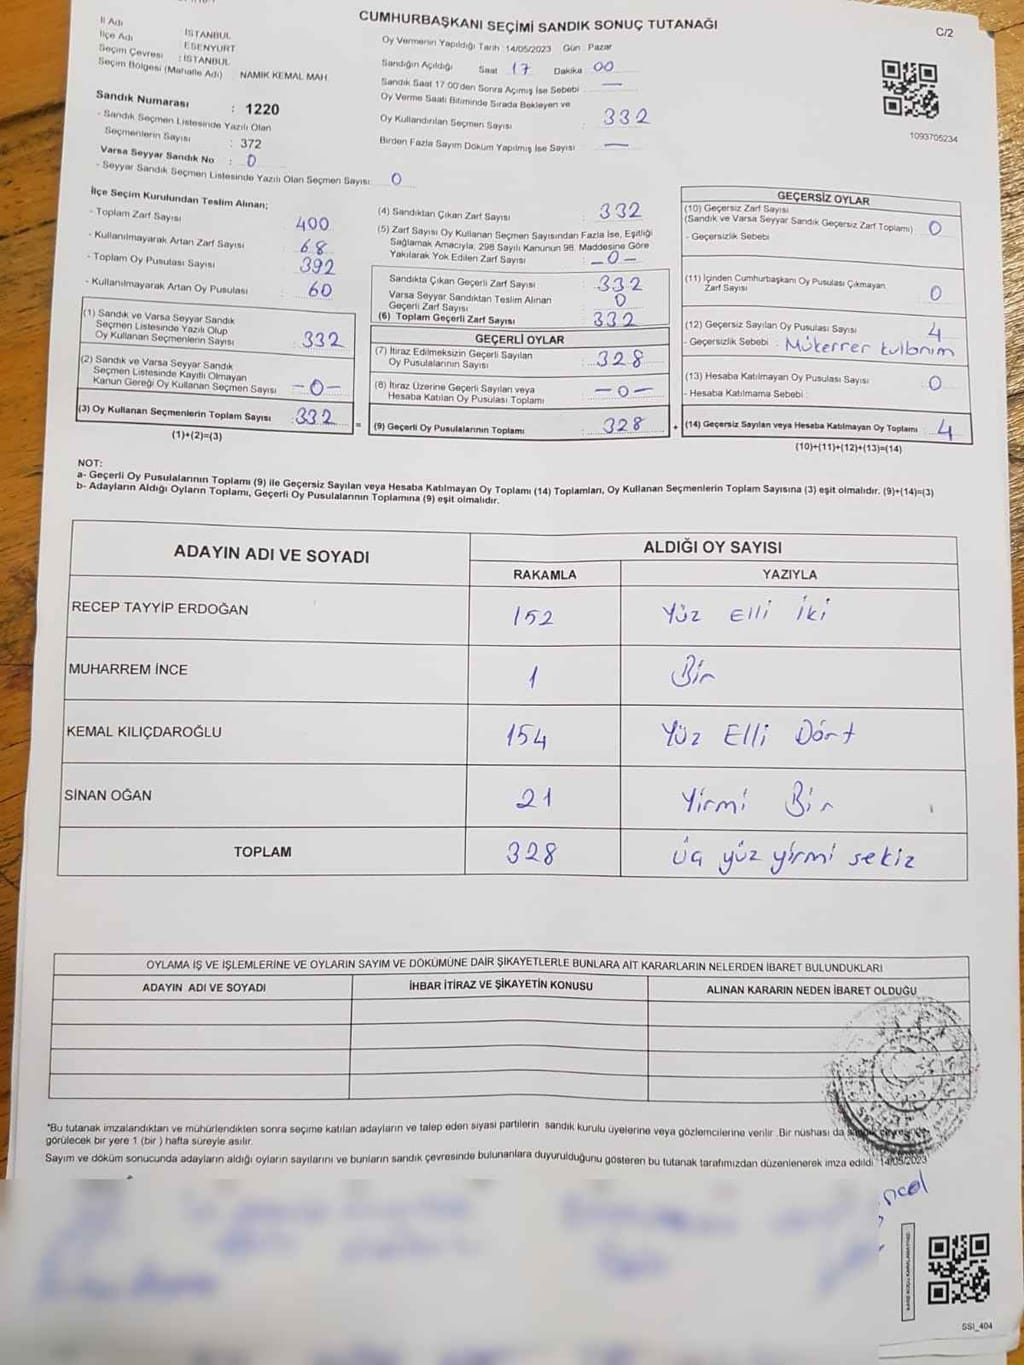 CUMHURBAŞKANI SEÇİMİ SANDIK SONUÇ TUTANAĞI
C/2
İl Adı İSTANBUL
İlçe Adı ESENYURT
Seçim Çevresi : İSTANBUL
Seçim Bölgesi (Mahalle Adı) NAMIK KEMAL MAH
Sandık Numarası : 1220
- Sandık Seçmen Listesinde Yazılı Olan
Seçmenlerin Sayısı : 372
Varsa Seyyar Sandık No : 0
- Seyyar Sandık Seçmen Listesinde Yazılı Olan Seçmen Sayısı: 0
Oy Vermenin Yapıldığı Tarih 14/05/2023 Gün Pazar
Sandığın Açıldığı Saat 17 Dakika 00
Sandık Saat 17 00'den Sonra Açımış İse Sebebi —
Oy Verme Saati Bitiminde Sırada Bekleyen ve
Oy Kullandırılan Seçmen Sayısı : 332
Birden Fazla Sayım Döküm Yapılmış İse Sayısı —
1093705234
İlçe Seçim Kurulundan Teslim Alınan;
- Toplam Zarf Sayısı : 400
- Kullanılmayarak Artan Zarf Sayısı : 68
- Toplam Oy Pusulası Sayısı : 392
- Kullanılmayarak Artan Oy Pusulası : 60
(1) Sandık ve Varsa Seyyar Sandık
Seçmen Listesinde Yazılı Olup
Oy Kullanan Seçmenlerin Sayısı : 332
(2) Sandık ve Varsa Seyyar Sandık
Seçmen Listesinde Kayıtlı Olmayan
Kanun Gereği Oy Kullanan Seçmen Sayısı -0-
(3) Oy Kullanan Seçmenlerin Toplam Sayısı : 332
(1)+(2)=(3)
(4) Sandıktan Çıkan Zarf Sayısı : 332
(5) Zarf Sayısı Oy Kullanan Seçmen Sayısından Fazla İse, Eşitliği
Sağlamak Amacıyla, 298 Sayılı Kanunun 98. Maddesine Göre
Yakılarak Yok Edilen Zarf Sayısı : -0-
Sandıkta Çıkan Geçerli Zarf Sayısı : 332
Varsa Seyyar Sandıktan Teslim Alınan
Geçerli Zarf Sayısı : 0
(6) Toplam Geçerli Zarf Sayısı : 332
GEÇERLİ OYLAR
(7) İtiraz Edilmeksizin Geçerli Sayılan
Oy Pusulalarının Sayısı : 328
(8) İtiraz Üzerine Geçerli Sayılan veya
Hesaba Katılan Oy Pusulası Toplamı : -0-
= (9) Geçerli Oy Pusulalarının Toplamı : 328
GEÇERSİZ OYLAR
(10) Geçersiz Zarf Sayısı
(Sandık ve Varsa Seyyar Sandık Geçersiz Zarf Toplamı) 0
- Geçersizlik Sebebi
(11) İçinden Cumhurbaşkanı Oy Pusulası Çıkmayan
Zarf Sayısı : 0
(12) Geçersiz Sayılan Oy Pusulası Sayısı : 4
- Geçersizlik Sebebi : Mükerrer kullanım
(13) Hesaba Katılmayan Oy Pusulası Sayısı : 0
- Hesaba Katılmama Sebebi :
+ (14) Geçersiz Sayılan veya Hesaba Katılmayan Oy Toplamı : 4
(10)+(11)+(12)+(13)=(14)
NOT:
a- Geçerli Oy Pusulalarının Toplamı (9) ile Geçersiz Sayılan veya Hesaba Katılmayan Oy Toplamı (14) Toplamları, Oy Kullanan Seçmenlerin Toplam Sayısına (3) eşit olmalıdır. (9)+(14)=(3)
b- Adayların Aldığı Oyların Toplamı, Geçerli Oy Pusulalarının Toplamına (9) eşit olmalıdır.
ADAYIN ADI VE SOYADI ALDIĞI OY SAYISI
RAKAMLA YAZIYLA
RECEP TAYYİP ERDOĞAN 152 Yüz Elli İki
MUHARREM İNCE 1 Bir
KEMAL KILIÇDAROĞLU 154 Yüz Elli Dört
SİNAN OĞAN 21 Yirmi Bir
TOPLAM 328 üç yüz yirmi sekiz
OYLAMA İŞ VE İŞLEMLERİNE VE OYLARIN SAYIM VE DÖKÜMÜNE DAİR ŞİKAYETLERLE BUNLARA AİT KARARLARIN NELERDEN İBARET BULUNDUKLARI
ADAYIN ADI VE SOYADI İHBAR İTİRAZ VE ŞİKAYETİN KONUSU ALINAN KARARIN NEDEN İBARET OLDUĞU
*Bu tutanak imzalandıktan ve mühürlendikten sonra seçime katılan adayların ve talep eden siyasi partilerin sandık kurulu üyelerine veya gözlemcilerine verilir .Bir nüshası da sandık
görülecek bir yere 1 (bir ) hafta süreyle asılır.
Sayım ve döküm sonucunda adayların aldığı oyların sayılarını ve bunların sandık çevresinde bulunanlara duyurulduğunu gösteren bu tutanak tarafımızdan düzenlenerek imza edildi 14/05/2023
SSI_404